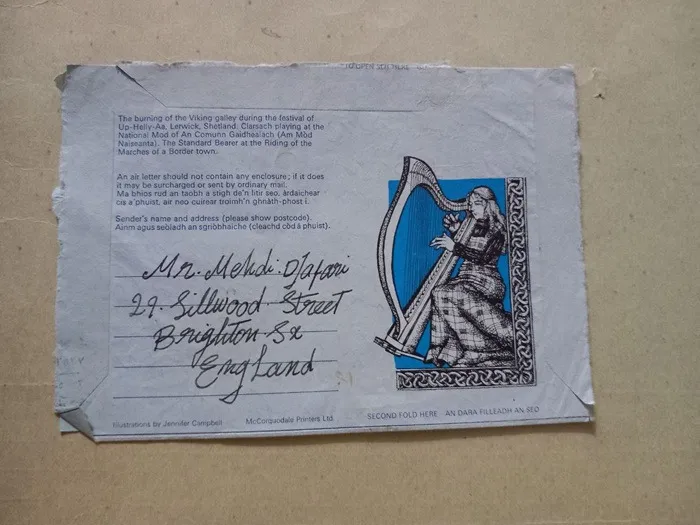 TO OPEN SLIT HERE
The burning of the Viking galley during the festival of
Up-Helly-Aa, Lerwick, Shetland. Clarsach playing at the
National Mod of An Comunn Gaidhealach (Am Mòd
Naiseanta). The Standard Bearer at the Riding of the
Marches of a Border town.
An air letter should not contain any enclosure; if it does
it may be surcharged or sent by ordinary mail.
Ma bhios rud an taobh a stigh de'n litir seo, àrdaichear
cis a'phuist, air neo cuirear troimh'n ghnàth-phost i.
Sender's name and address (please show postcode).
Ainm agus seòladh an sgrìobhaiche (cleachd còd a phuist).
Mr. Mehdi. Djafari
29. Sillwood. Street
Brighton. Sx
England
Illustrations by Jennifer Campbell
McCorquodale Printers Ltd.
SECOND FOLD HERE - AN DARA FILLEADH AN SEO